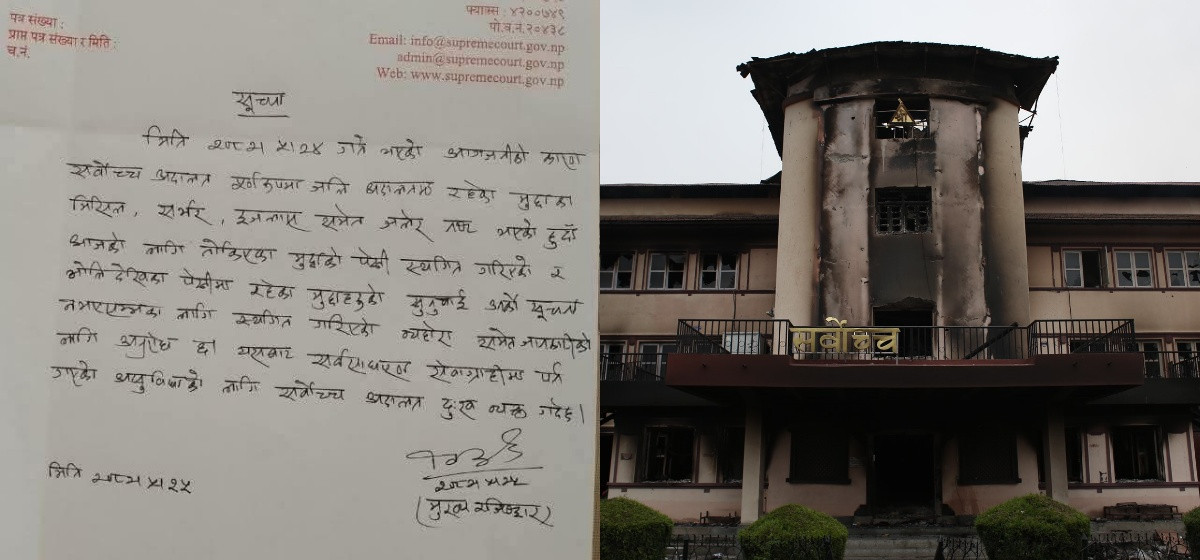 फ्याक्स : ४२००७४९
पो.व.नं.२०४३८
Email: info@supremecourt.gov.np
admin@supremecourt.gov.np
Web: www.supremecourt.gov.np
पत्र संख्या :
प्राप्त पत्र संख्या र मिति :
च.नं.
सूचना
मिति २०८२।५।२४ गते भएको आगजनीको कारण
सर्वोच्च अदालत पूर्णरुपमा जलि अदालतमा रहेका मुद्दाका
मिसिल, सर्भर, इजलास समेत जलेर नष्ट भएको हुँदा
आजको लागि तोकिएका मुद्दाको पेशी स्थगित गरिएको र
भोलि देखिका पेशीमा रहेका मुद्दाहरुको सुनुवाई अर्को सूचना
नभएसम्मका लागि स्थगित गरिएको व्यहोरा समेत जानकारीको
लागि अनुरोध छ। यसबाट सर्वसाधारण सेवाग्राहीमा पर्न
गएको असुविधाको लागि सर्वोच्च अदालत दुःख व्यक्त गर्दछ।
२०८२।५।२५
(मुख्य रजिष्ट्रार)
मिति २०८२।५।२५
सर्वोच्च